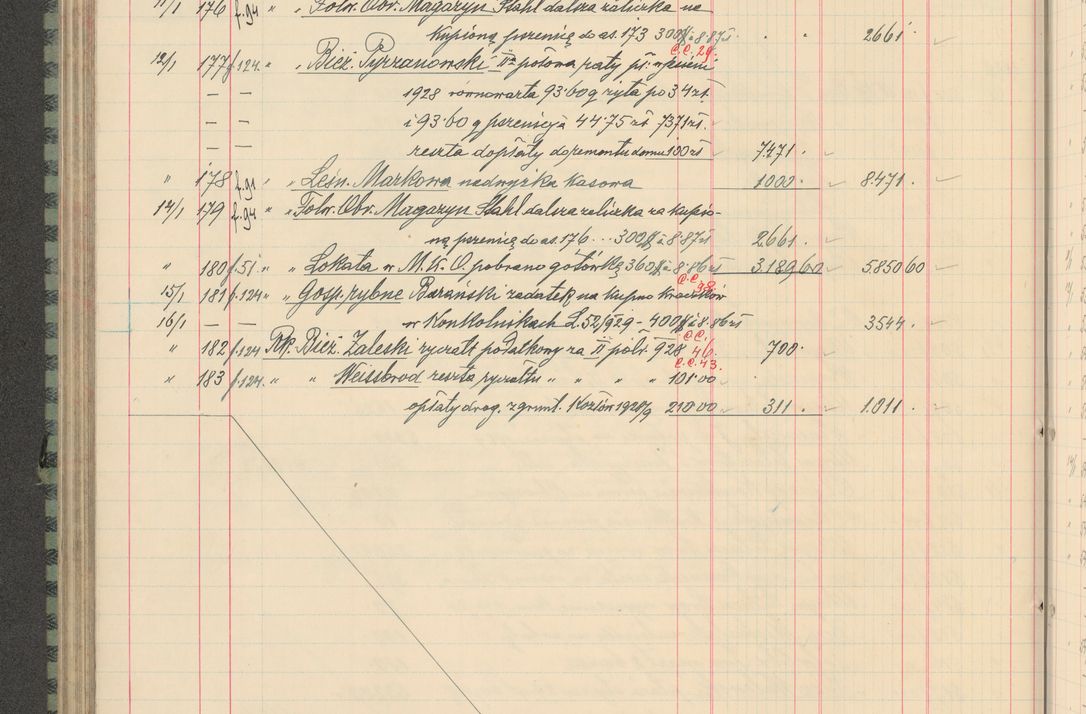 11/1 176 f.94 " " Folw. Obr. Magazyn Stahl dalsza zaliczka na
kupioną pszenicę do as. 173 300 à 8·87zł. 2661·
C.C. 29.
12/1 177 f.124 " " Bież. Pyrzanowski - IIa połowa raty pł. w pszeni
— — 1928 równowarta 93·60 q żyta po 34 zł.
— — i 93·60 q pszenicy à 44·75 zł 7371 zł.
— — reszta dopłaty do remontu domu 100 zł 7471·
" 178 f.91 " " Leśn. Markowa nadwyżka kasowa 1000· 8.471·
14/1 179 f.94 " " Folw. Obr. Magazyn Stahl dalsza zaliczka za kupio-
ną pszenicę do as. 176 ... 300 à 8·87zł 2661·
" 180 f.51 " " Lokata w M.K.O. pobrano gotówką 360 à 8·86 zł 3.189,60 5.850,60
C.C.
15/1 181 f.124 " " Gosp. rybne Barański zadatek na kupno kroczków
16/1 — — w Konkolnikach L.52/929 - 400 à 8.86 zł 3544·
C.C. 46.
" 182 f.124 Rk. Bież. Zaleski ryczałt podatkowy za II półr. 928 700·
C.C. 43.
" 183 f.124 " " Weissbrod reszta ryczałtu " " " " 101·00
opłaty drog. z grunt. Kozłów 1928/9 210·00 311· 1.011·